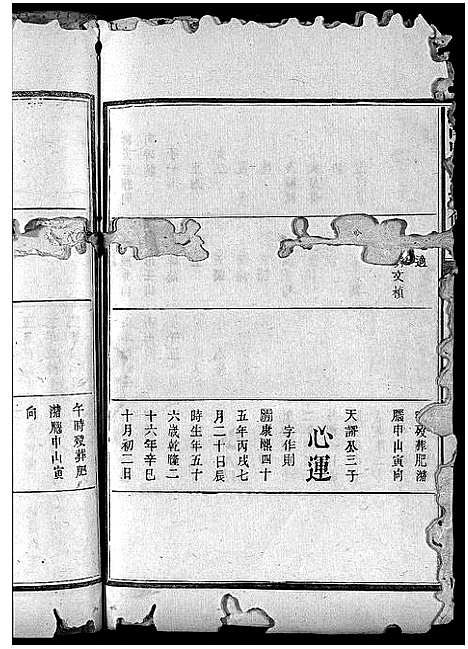 適
文楨
葬肥潴
廳申山寅向
天諝公三子
心運
字作則
康熙四十
五年丙戌七
月二十日辰
時生年五十
六歲乾隆二
十六年辛巳
十月初二日
午時歿葬肥
潴廳申山寅
向